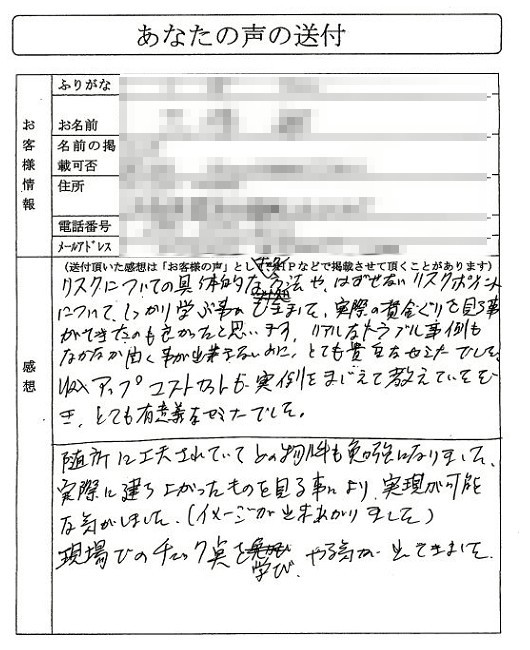 あなたの声の送付
お客様情報
ふりがな
お名前
名前の掲
載可否
住所
電話番号
メールアドレス
感想
(送付頂いた感想は「お客様の声」としてHPなどで掲載させて頂くことがあります)
リスクについての具体的な方法や、はずせないリスクポイント
について、しっかり学ぶ事ができまして、実際の資金ぐりを見る事
ができたのも良かったと思います。リアルなトラブル事例も
なかなか聞く事が出来ないのに、とても貴重なセミナーでした。
収入アップ コストカットも実例をまじえて教えていただ
き、とても有意義なセミナーでした。
随所に工夫されていてどの物件も勉強になりました。
実際に建ち上がったものを見る事により、実現が可能
な気がしました。(イメージが出来あがりました)
現場でのチェック点を学び、やる気が出てきまして。